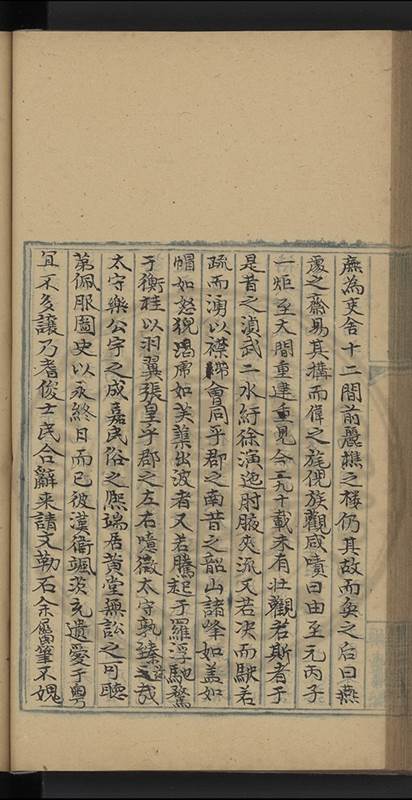 廡為吏舍十二間前麗譙之楼仍其故而奐之后曰燕
處之齋易其搆而偉之旄倪族觀咸嘖曰由至元丙子
一炬至大間重建重見今三九十載未有壯觀若斯者于
是昔之湞武二水紆徐演迤肘腋夾流又若决而駛若
疏而湧以襟帶會同乎郡之南昔之韶山諸峰如盖如
帽如怒猊渴虎如芙蕖出波者又若騰起于羅浮馳騖
于衡桂以羽翼張皇乎郡之左右噫微太守孰臻玆哉
太守樂公宇之成嘉民俗之熈端居黄堂無訟之可聽
第佩服圖史以永終日而已彼漢衛颯茨充遺愛于粤
宜不多讓乃耆俊士民合辭来請文勒石余屬筆不媿